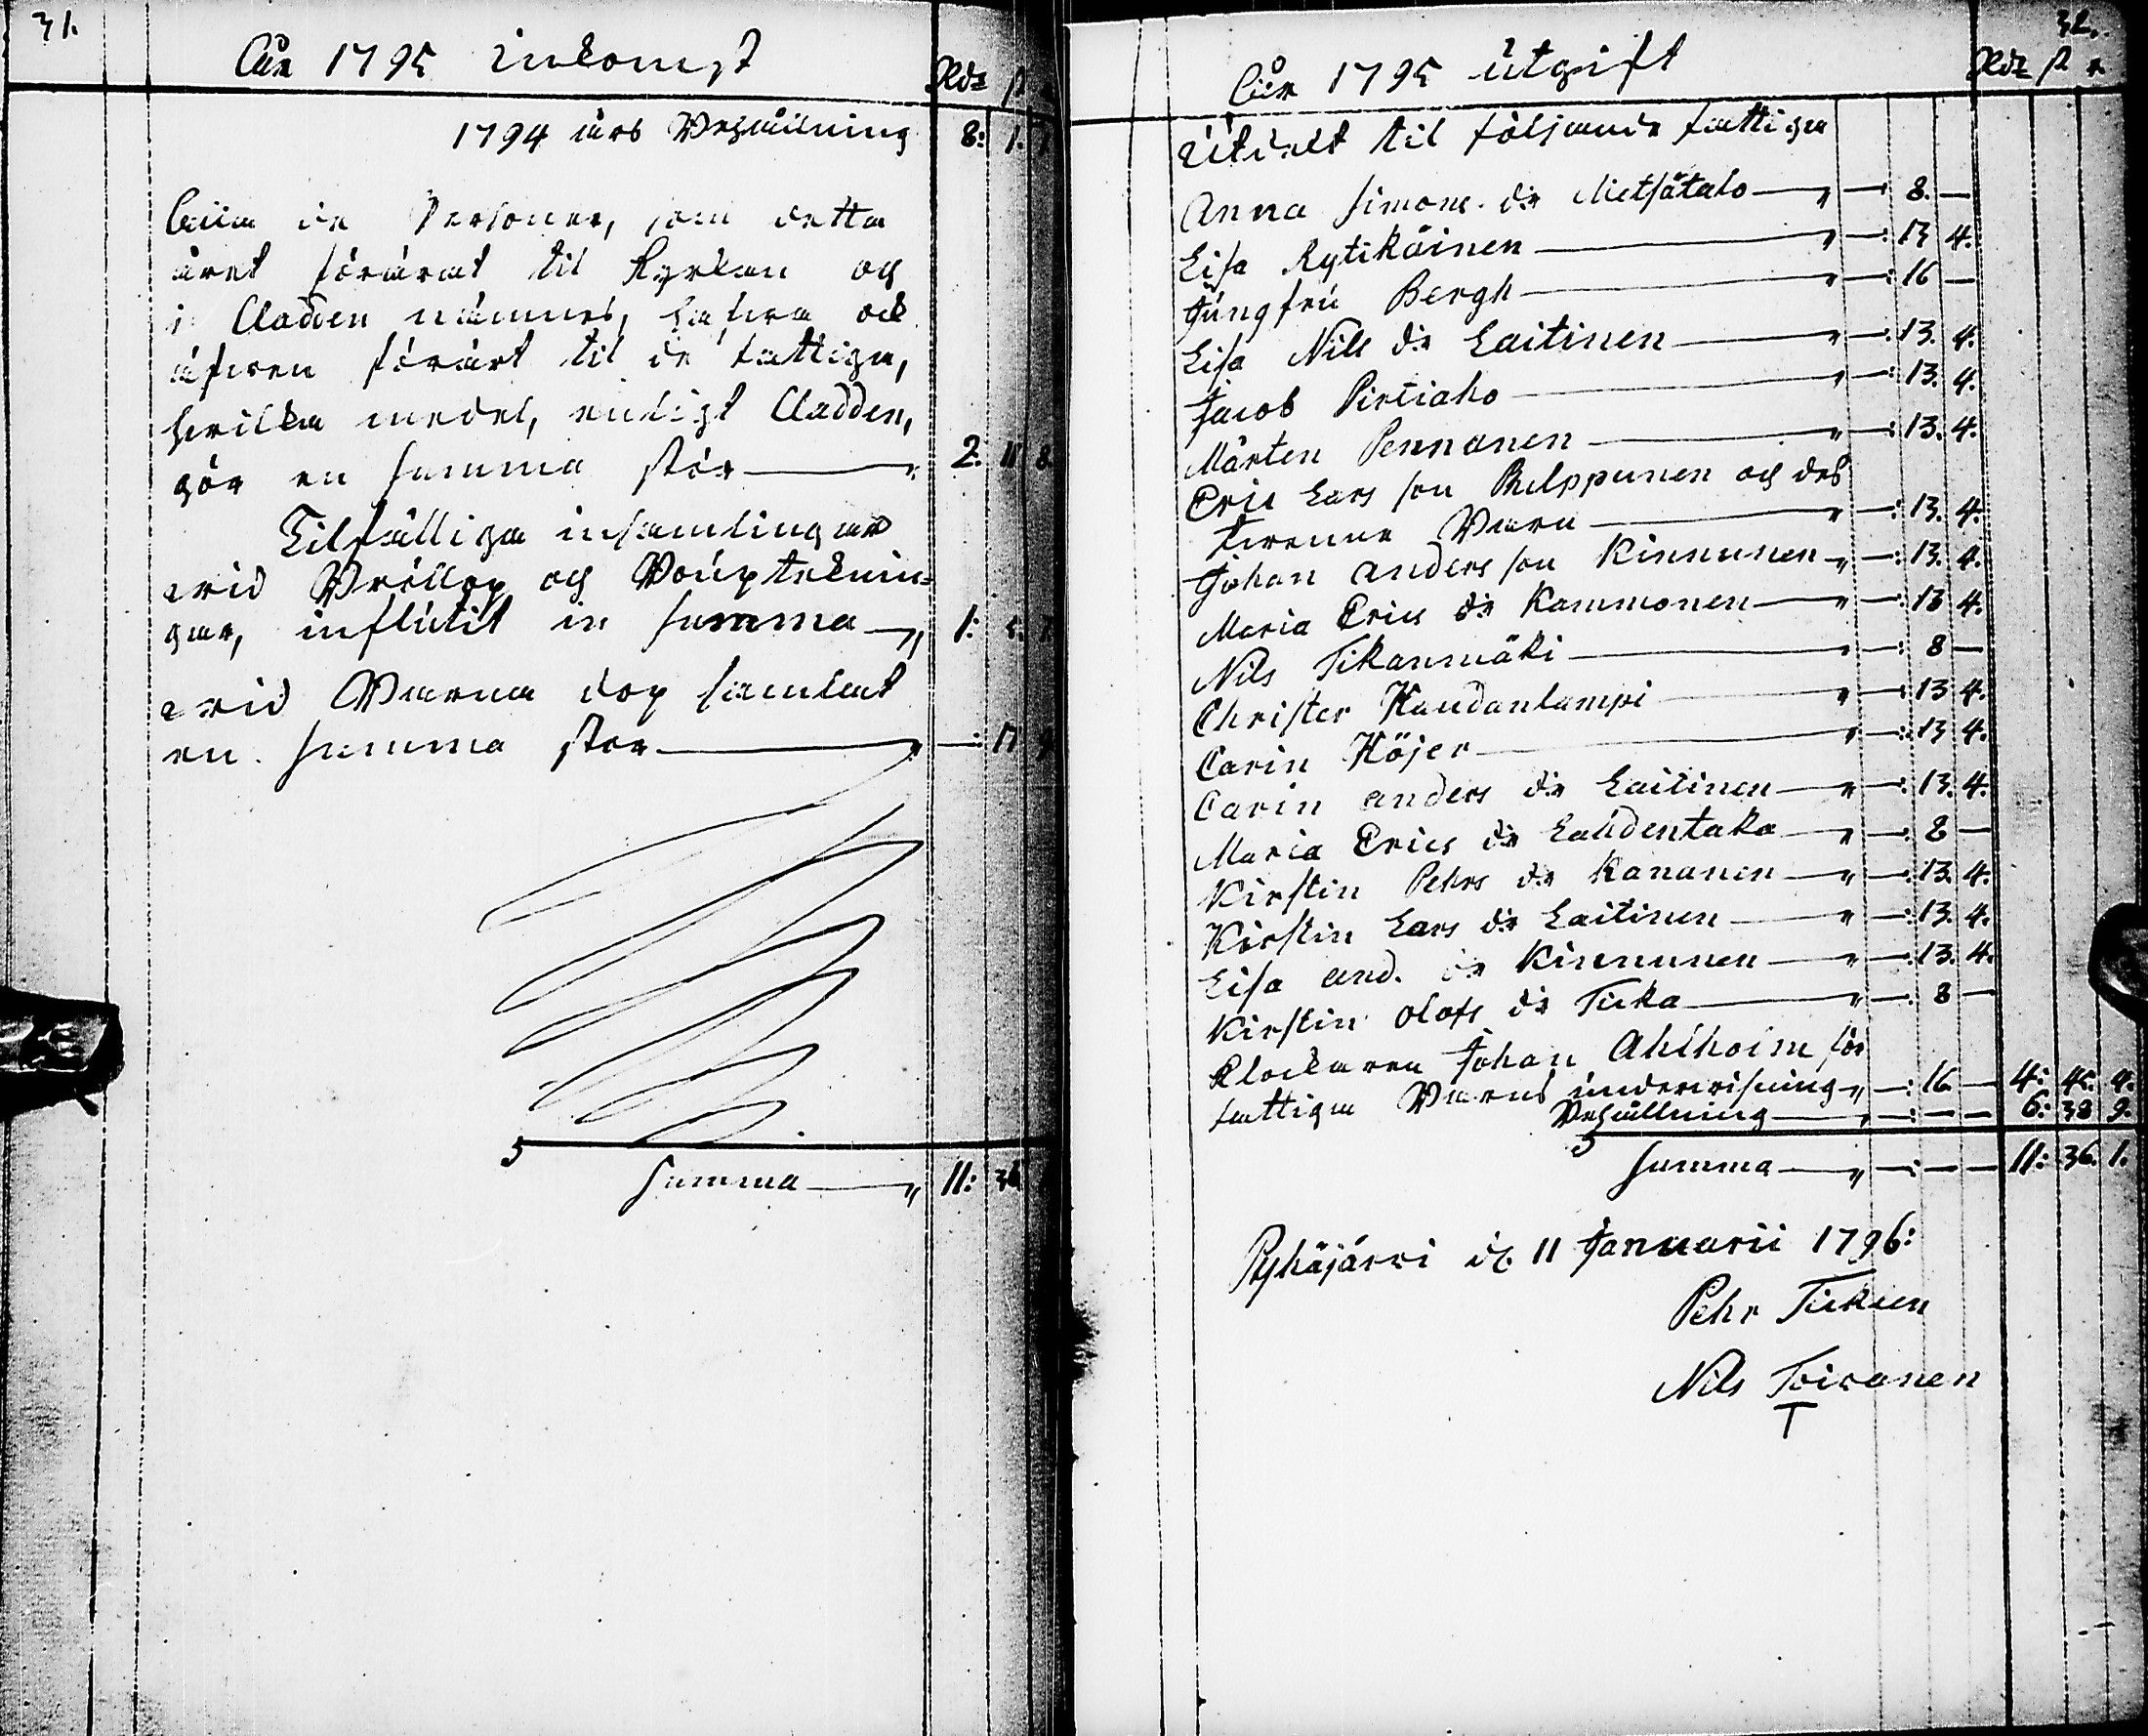 31.
År 1795 Inkomst
Rdr ß
1794 års Behållning 8: 1. 7
Alla de Personer, som detta
året förärat til Kyrkan och
i Cladden nämnes, hafva ock
äfwen förärt til de fattiga,
hvilka medel, enligt Cladden,
gör en summa stor — 2. 11 8.
Tilfälliga insamlingar
wid Bröllop och Boupteknin=
gar, influtit in summa — 1: 5. 7.
wid Barna dop samlat
en summa stor — —: 17 9
Summa — 11: 36
32.
År 1795 Utgift
Rdr ß r.
Utdelt til följande fattiga
Anna Simons dr Metsätalo — — 8. —
Lisa Rytikäinen — —: 13 4.
Jungfru Bergh — —: 16 —
Lisa Nils dr Laitinen — —: 13. 4.
Jacob Pirtiaho — —: 13. 4.
Mårten Pennanen — —: 13. 4.
Eric Lars son Pulppunen och des
twenne Barn — —: 13. 4.
Johan Anders son Kinnunen — —: 13. 4.
Maria Erics dr Kammonen — —: 13 4.
Nils Tikanmäki — —: 8 —
Christer Haudanlampi — —: 13 4.
Carin Höjer — —: 13 4.
Carin Anders dr Laitinen — —: 13. 4.
Maria Erics dr Lahdentaka — —: 8 —
Kirstin Pehrs dr Kananen — —: 13. 4.
Kirstin Lars dr Laitinen — —: 13. 4.
Lisa And. dr Kinnunen — —: 13. 4.
Kirstin Olofs dr Tuka — —: 8 —
Klockaren Johan Ahlholm för
fattiga Barns underwisning — —: 16 — 4: 45. 4.
Behållning — —: — — 6: 38 9.
Summa — —: — — 11: 36. 1.
Pyhäjärwi d. 11 Januarii 1796:
Pehr Tuken
Nils Toiwanen
T